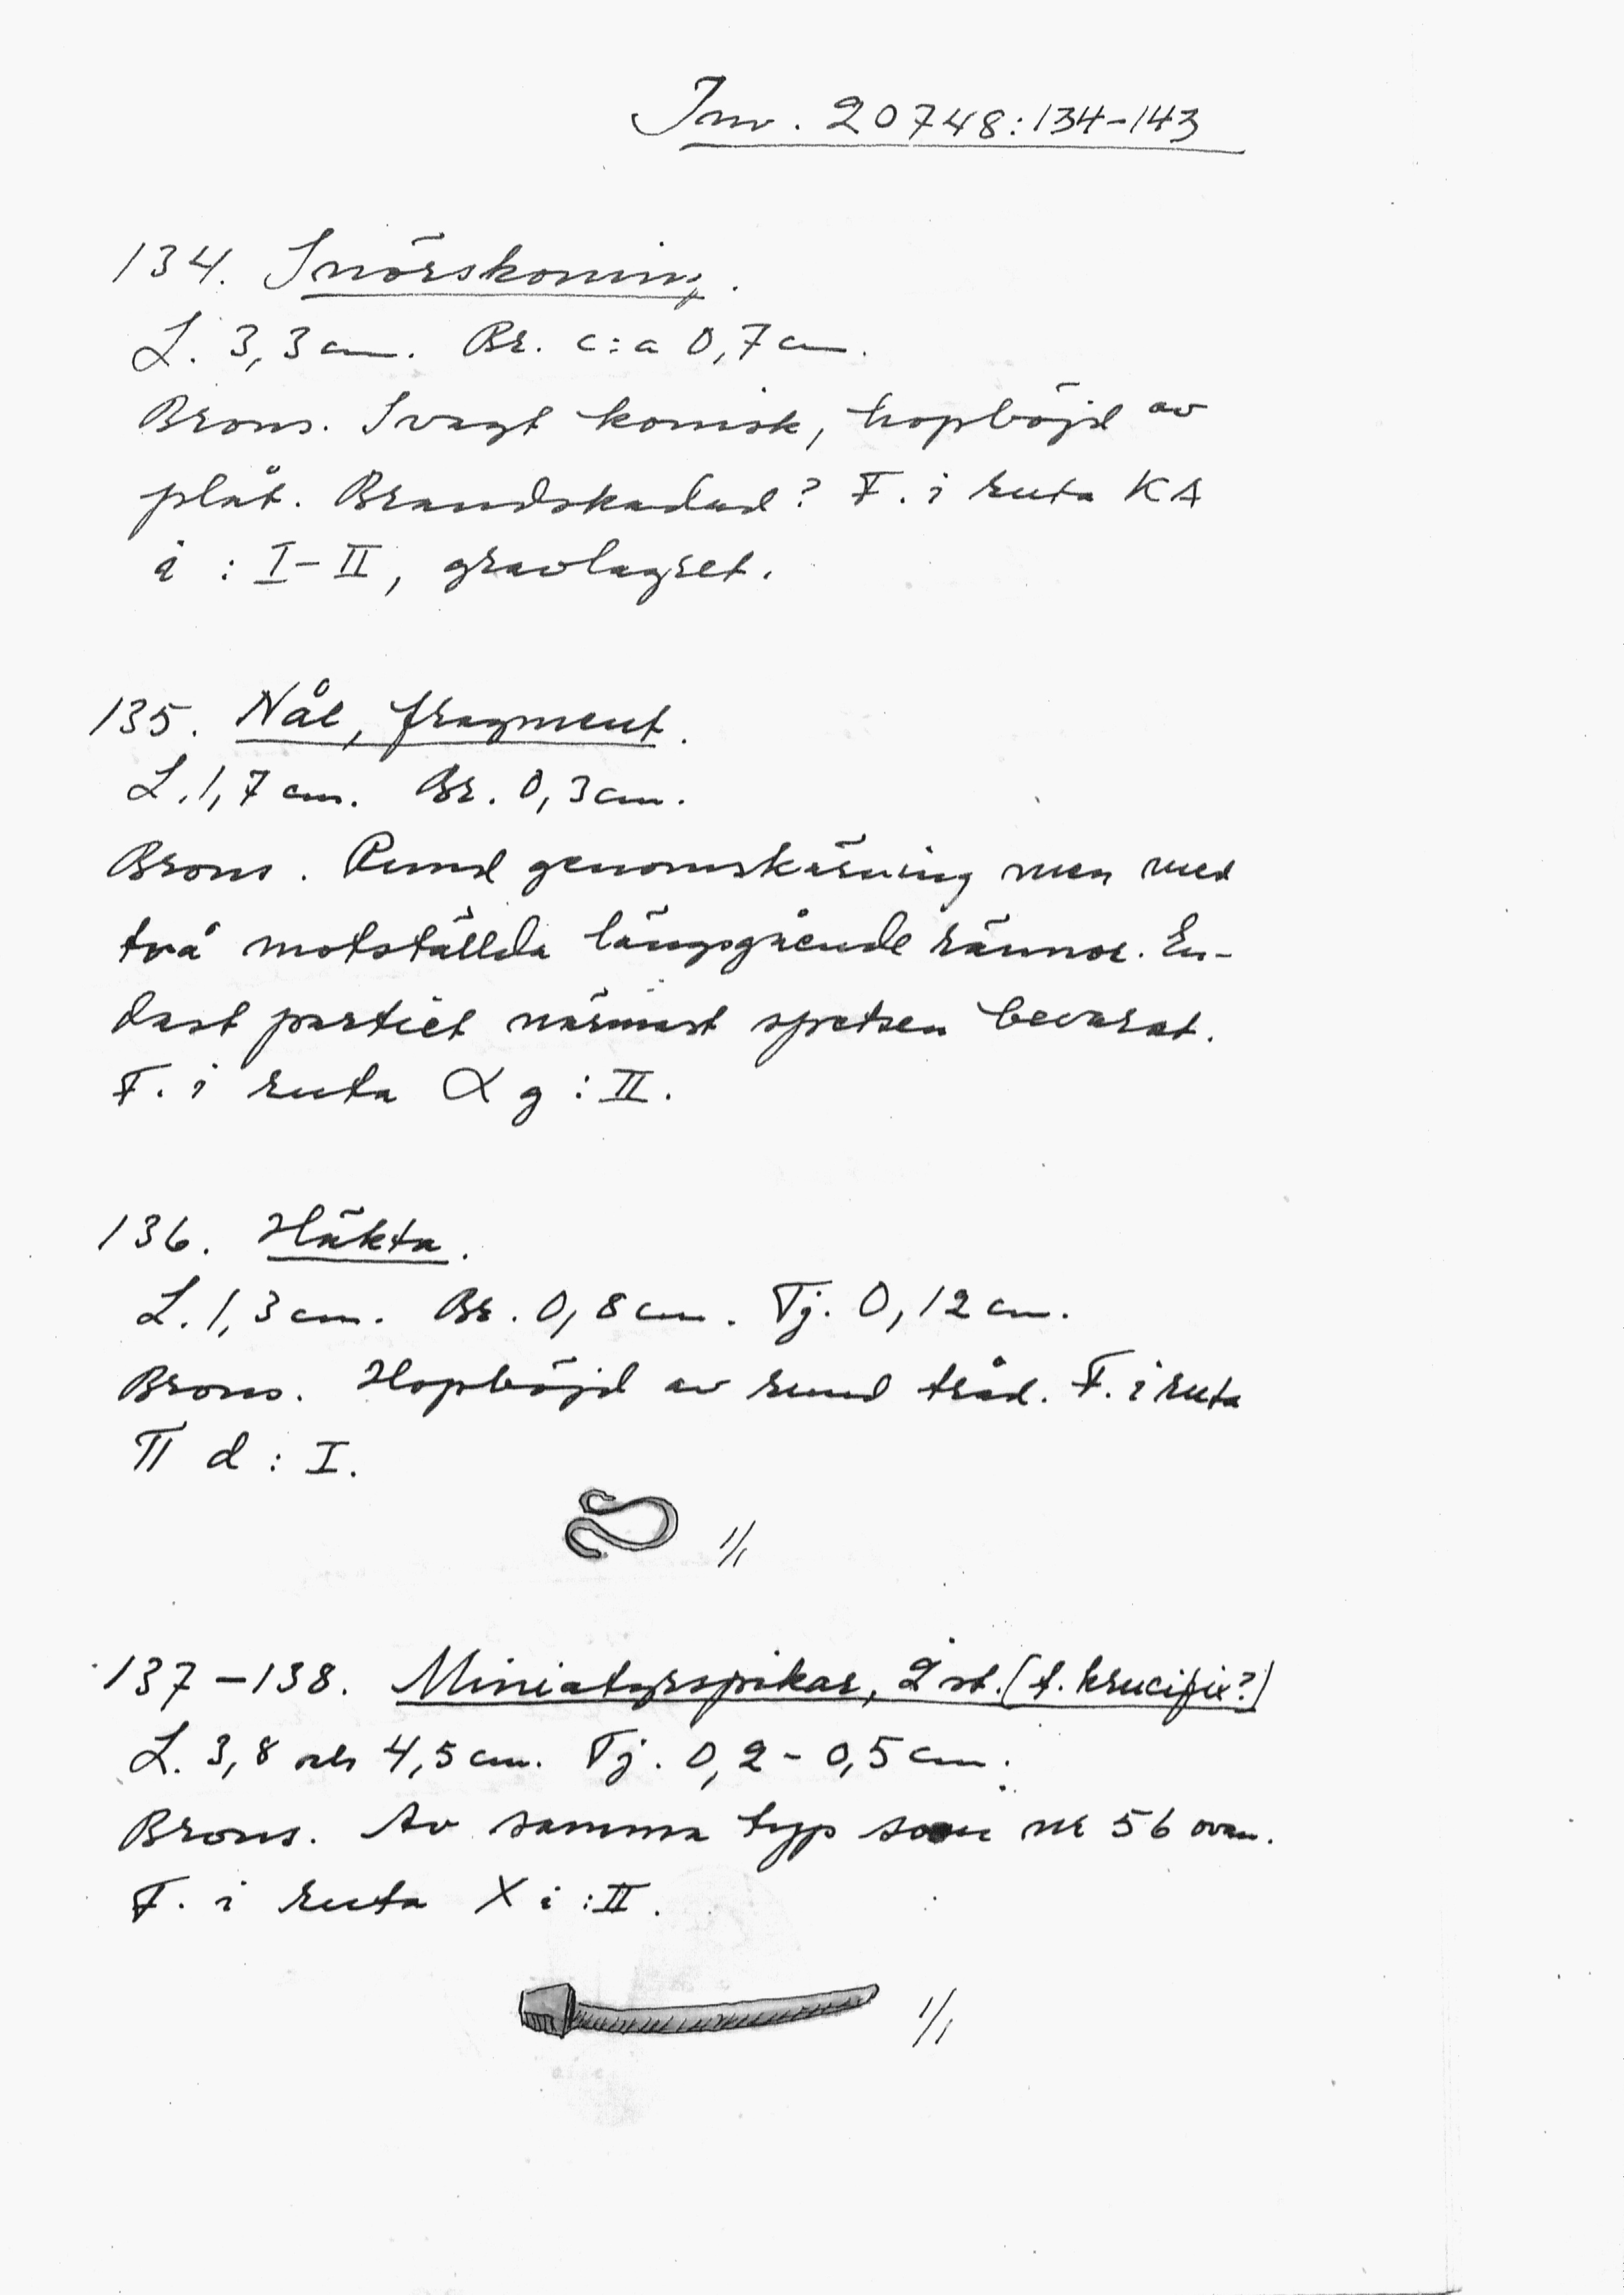 Inv. 20748:134-143
134. Snörskoning.
L. 3,3 cm. Br. c:a 0,7 cm.
Brons. Svagt konisk, hopböjd av
plåt. Brandskadad? F. i ruta KA
i : I-II, gravlagret.
135. Nål, fragment.
L. 1,7 cm. Br. 0,3 cm.
Brons. Rund genomskärning men med
två motställda längsgående rännor. En-
dast partiet närmast spetsen bevarat.
F. i ruta α g : II.
136. Häkta.
L. 1,3 cm. Br. 0,8 cm. Tj. 0,12 cm.
Brons. Hopböjd av rund tråd. F. i ruta
π d : I.
1/1
137-138. Miniatyrspikar, 2 st. (t. krucifix?)
L. 3,8 och 4,5 cm. Tj. 0,2 - 0,5 cm.
Brons. Av samma typ som nr 56 ovan.
F. i ruta X i : II.
1/1